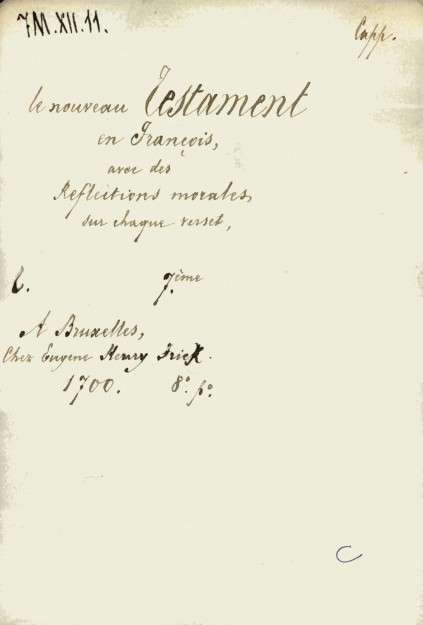 7M.XII.11.
Capp.
le nouveau Testament
en François,
avec des
Reflections morales
sur chaque verset,
t. 7.ème
A Bruxelles,
Chez Eugene Henry Frick.
1700. 8°. p°.
C